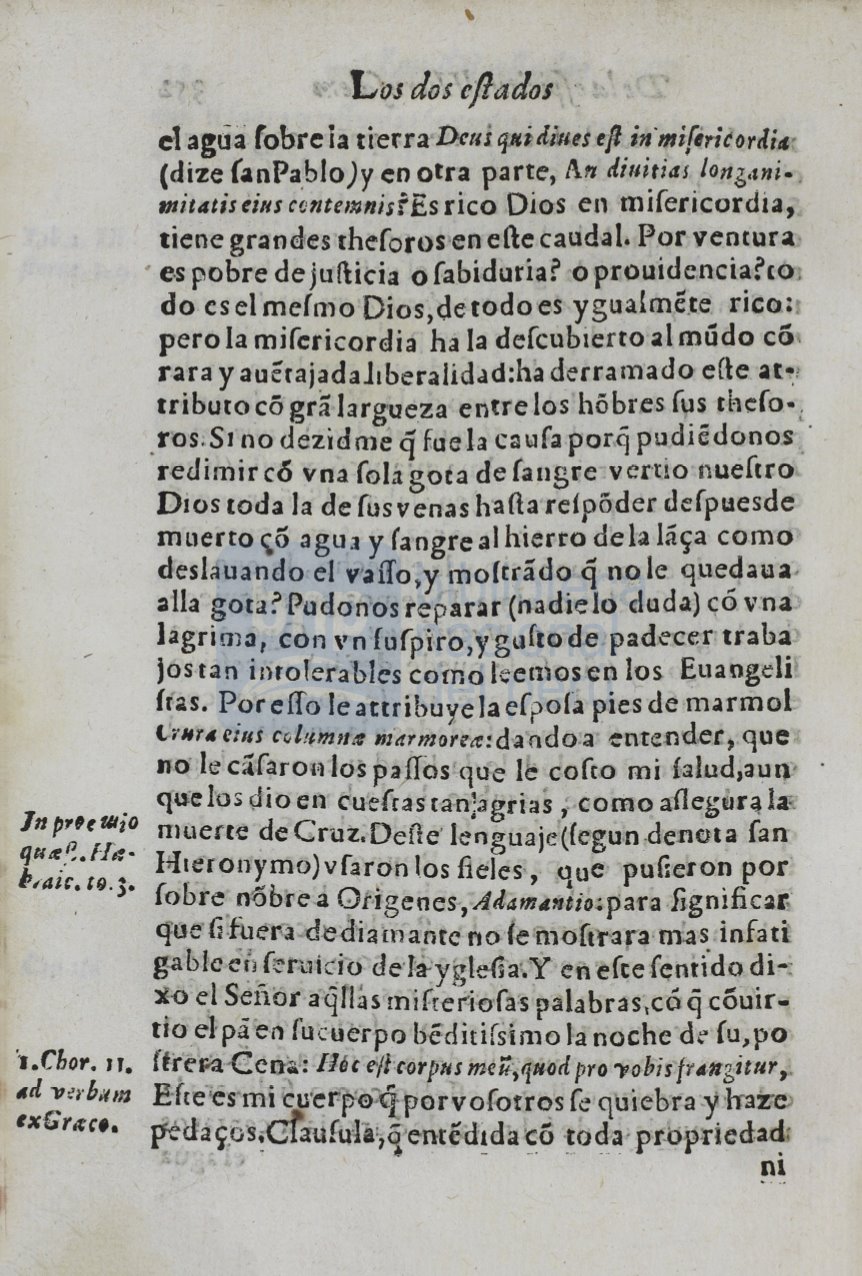 Los dos eſtados
el agua ſobre la tierra Deus qui diues eſt in miſericordia
(dize ſan Pablo) y en otra parte, An diuitias longani-
mitatis eius contemnis? Es rico Dios en miſericordia,
tiene grandes theſoros en eſte caudal. Por ventura
es pobre de juſticia o ſabiduria? o prouidencia? to
do es el meſmo Dios, de todo es ygualmẽte rico:
pero la miſericordia ha la deſcubierto al mũdo cõ
rara y auẽtajada liberalidad: ha derramado eſte at-
tributo cõ grã largueza entre los hõbres ſus theſo-
ros. Si no dezidme q̃ fue la cauſa porq̃ pudiẽdonos
redimir cõ vna ſola gota de ſangre vertio nueſtro
Dios toda la de ſus venas haſta reſpõder deſpues de
muerto cõ agua y ſangre al hierro de la lãça como
deslauando el vaſſo, y moſtrãdo q̃ no le quedaua
alla gota? Pudonos reparar (nadie lo duda) cõ vna
lagrima, con vn ſuſpiro, y guſto de padecer traba
jos tan intolerables como leemos en los Euangeli
ſtas. Por eſſo le attribuye la eſpoſa pies de marmol
Crura eius columnæ marmoreæ: dando a entender, que
no le cãſaron los paſſos que le coſto mi ſalud, aun
que los dio en cueſtas tan agrias, como aſſegura la
muerte de Cruz. Deſte lenguaje (ſegun denota ſan
Hieronymo) vſaron los fieles, que puſieron por
ſobre nõbre a Origenes, Adamantio: para ſignificar
que ſi fuera de diamante no ſe moſtrara mas infati
gable en ſeruicio de la ygleſia. Y en eſte ſentido di-
xo el Señor aq̃llas miſterioſas palabras, cõ q̃ cõuir-
tio el pã en ſu cuerpo bẽditiſsimo la noche de ſu, po
ſtrera Cena: Hoc eſt corpus meũ, quod pro vobis frangitur,
Eſte es mi cuerpo q̃ por voſotros ſe quiebra y haze
pedaços. Clauſula, q̃ entẽdida cõ toda propriedad
ni
In proemio
quæſ. Hæ-
braic. to. 3.
1. Chor. 11.
ad verbum
ex Græco.